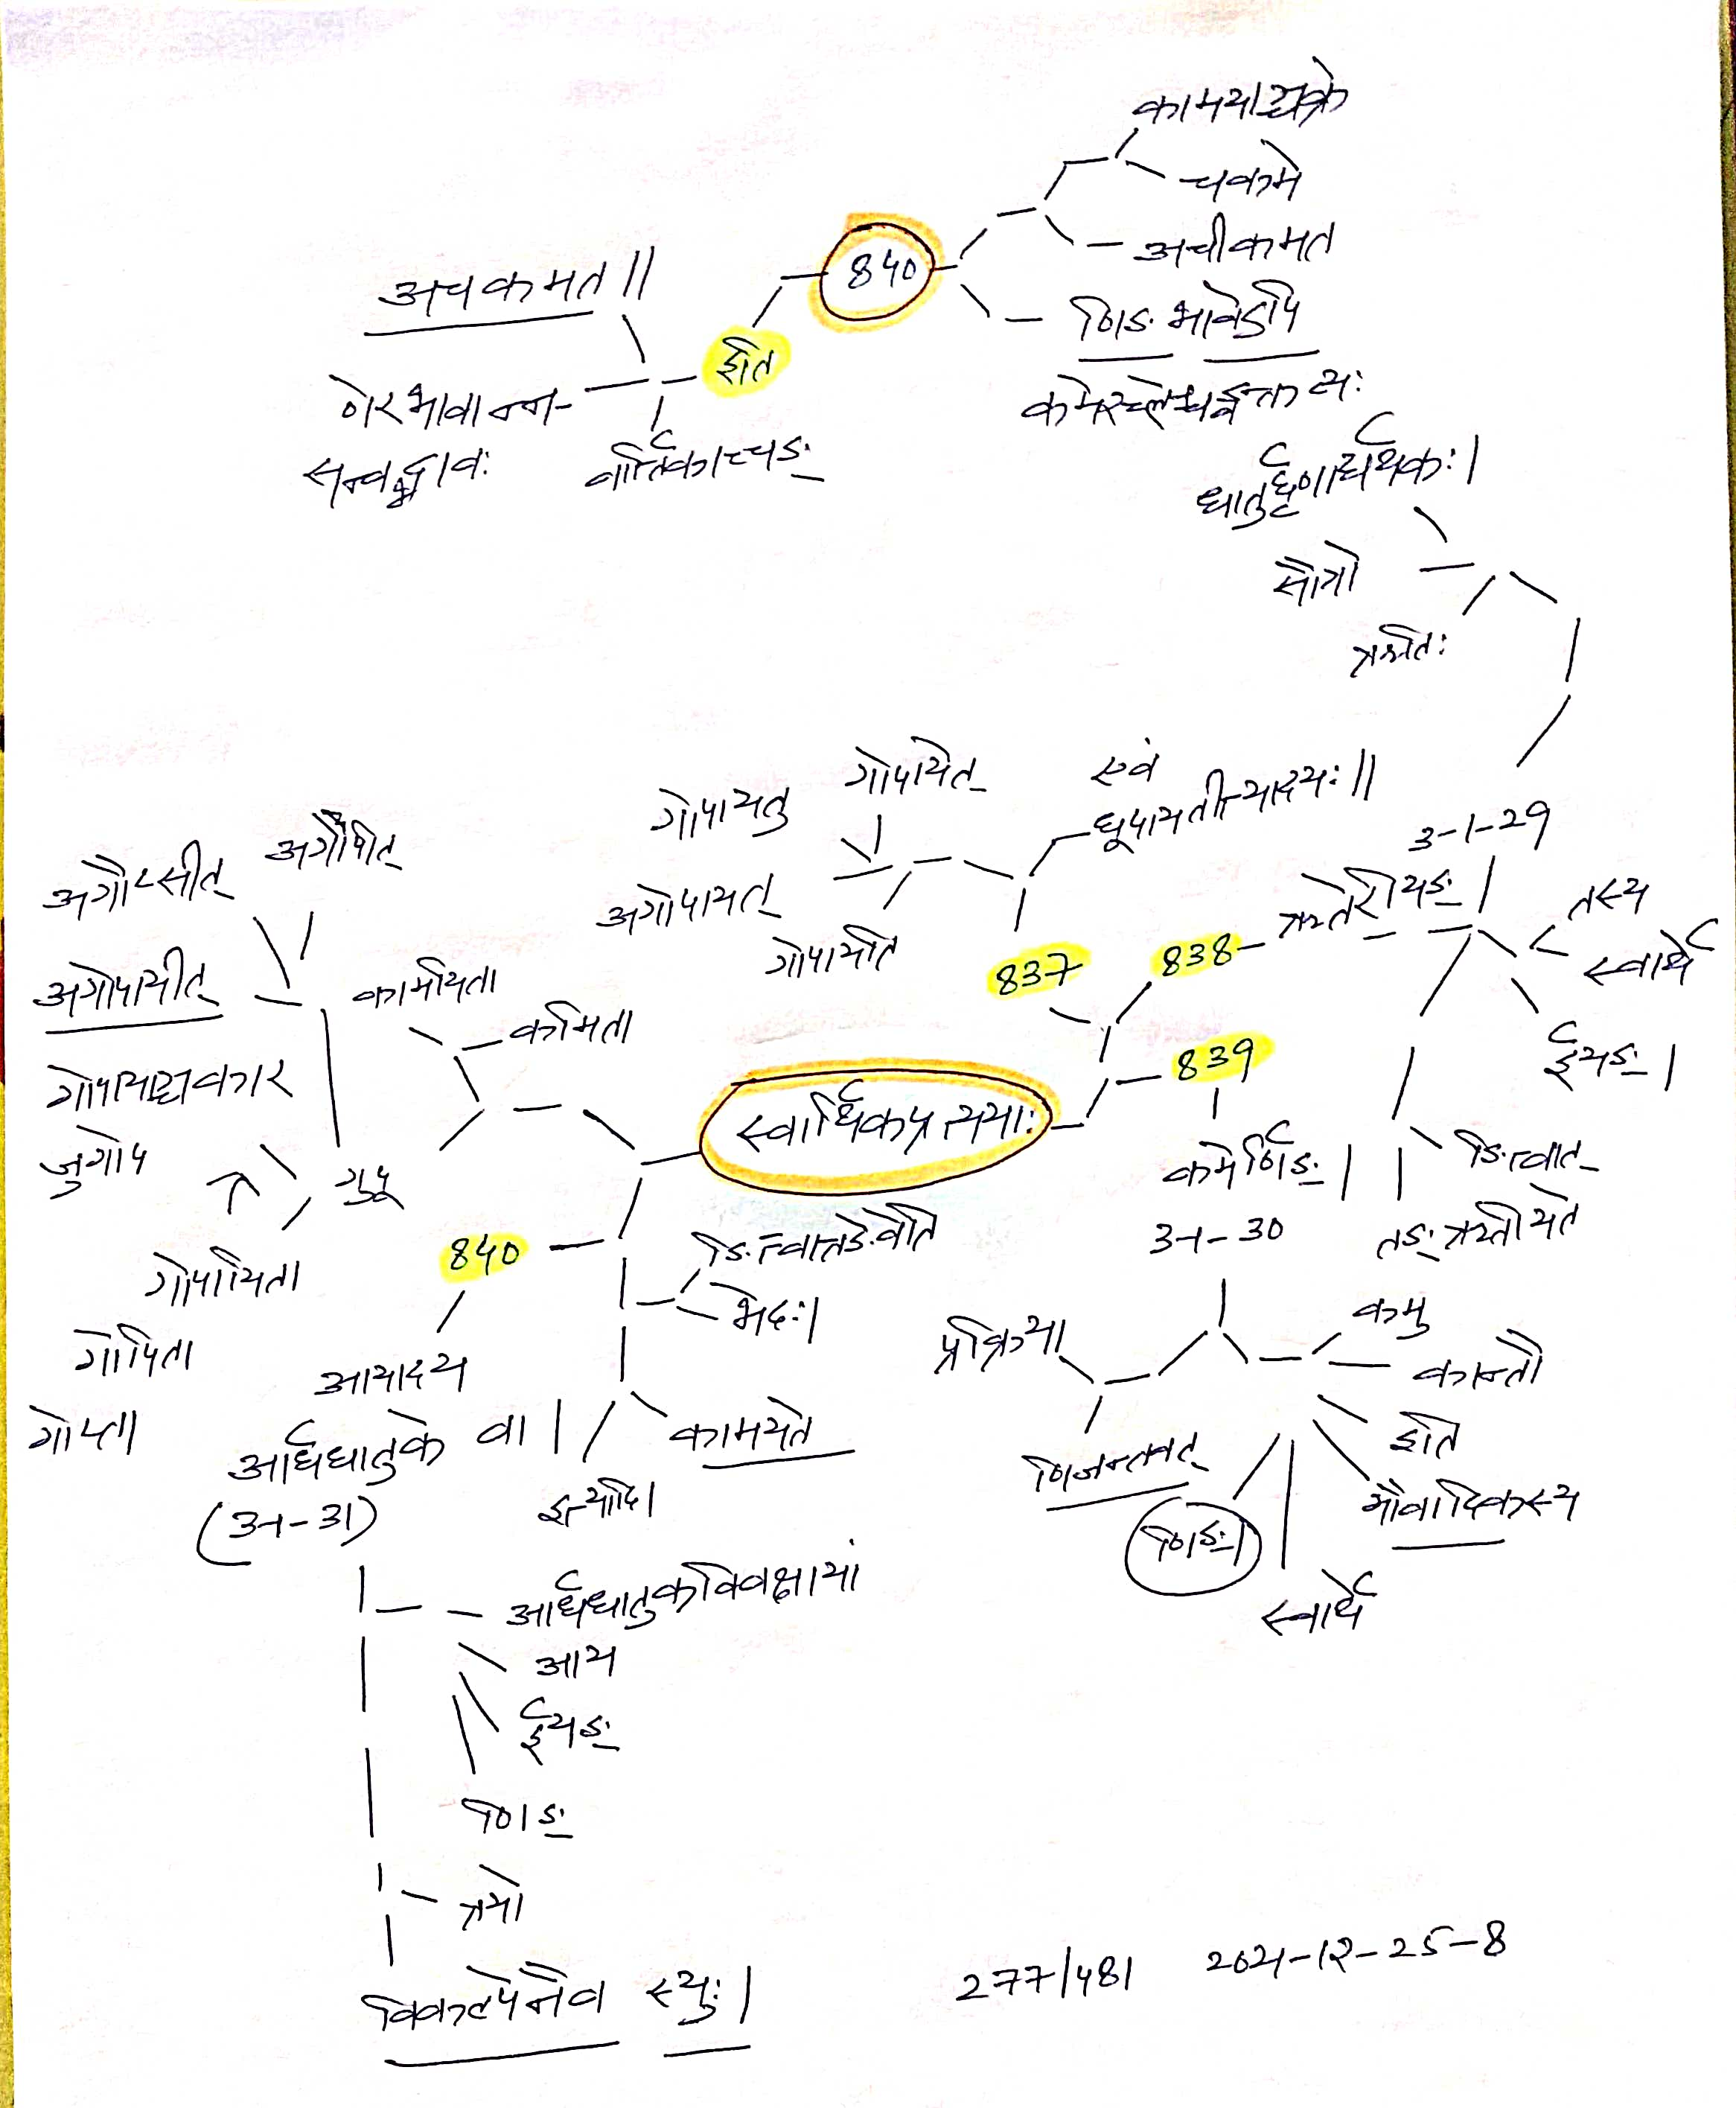 कामयाञ्चक्रे
चकमे
अचीकमत
840
अचकमत ||
णिङभावेऽपि
इति
णेरभावान्न-
कमेश्च्लेश्चङ्वक्तव्यः
सन्वद्भावः
वार्तिकाच्चङ्
धातुर्घृणार्थकः |
सौत्रो
ऋतिः
गोपायतु
गोपायेत्
एवं
धूपायतीत्यादयः ||
3-1-29
अगौप्सीत्
अगोपीत्
अगोपायत्
गोपायति
837
838
ऋतेरीयङ् |
तस्य
स्वार्थे
अगोपायीत्
कामयिता
कमिता
839
ईयङ् |
गोपायाञ्चकार
स्वार्थिकप्रत्ययाः
जुगोप
गुपू
कमेर्णिङ् |
ङित्वात्
3-1-30
तङ् ऋतीयते
840
ङित्वात्तङेवेति
भेदः |
गोपायिता
गोपिता
गोप्ता
आयादय
आर्धधातुके वा |
(3-1-31)
कामयते
इत्यादि |
प्रक्रिया
णिजन्तवत्
कमु
कान्तौ
इति
भौवादिकस्य
णिङ् |
स्वार्थे
आर्धधातुकविवक्षायां
आय
ईयङ्
णिङ्
त्रयो
विकल्पेनैव स्युः |
277/481 2021-12-25-8